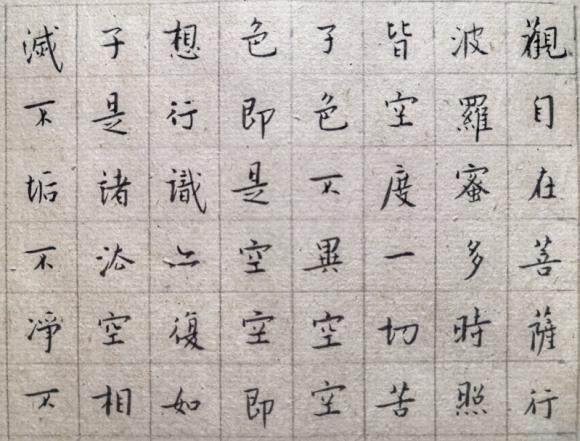 觀自在菩薩行
波羅蜜多時照
皆空度一切苦
子色不異空空
色即是空空即
想行識亦復如
子是諸法空相
滅不垢不淨不